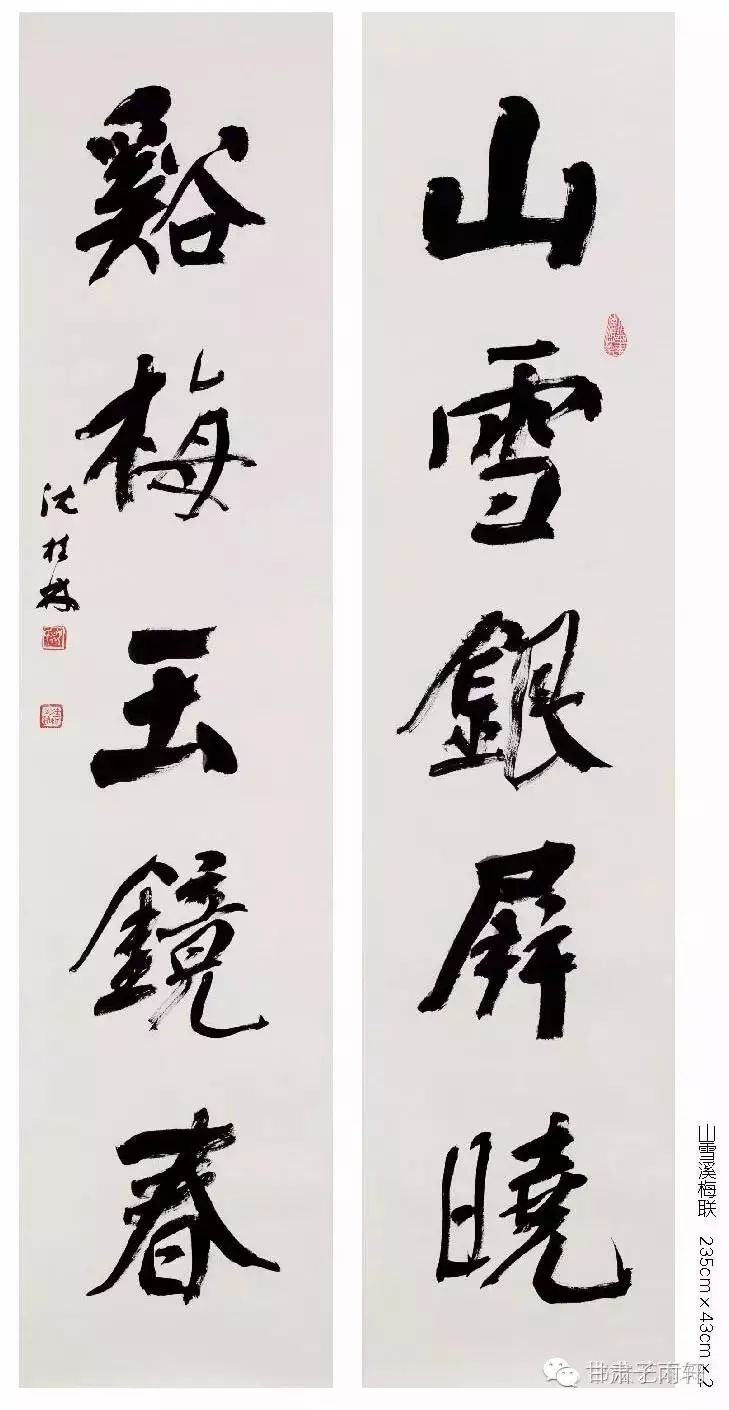 山雪銀屏曉
谿梅玉鏡春
沈桂林
山雪溪梅联 235cm x 43cm x 2
甘肃子雨轩